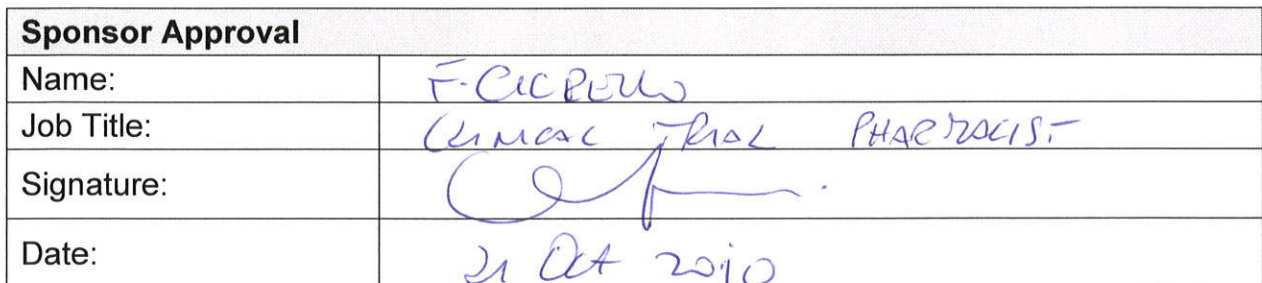 Sponsor Approval
Name: F. CICRELLO
Job Title: CLINICAL TRIAL PHARMACIST
Signature:
Date: 21 Oct 2010